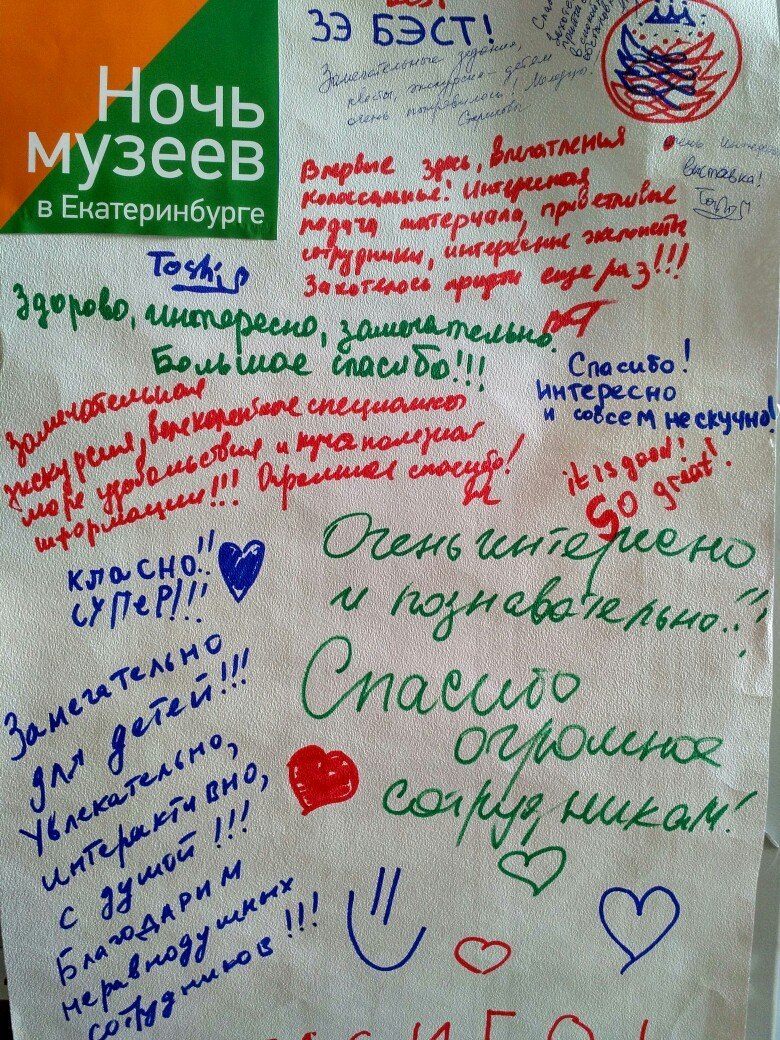 Ночь
музеев
в Екатеринбурге
ЗЭ БЭСТ!
Замечательные задания,
квесты, экскурсия - детям
очень понравилось! Молодцы!
очень интересная
выставка!
Впервые здесь, впечатления
колоссальные! Интересная
подача материала, приветливые
сотрудники, интересные экспонаты
Захотелось придти еще раз!!!
Toshi
Здорово, интересно, замечательно.
Большое спасибо!!!
Спасибо!
Интересно
и совсем нескучно!
Замечательная
экскурсия, великолепные специалисты
море удовольствия и куча полезной
информации!!! Огромное спасибо!
it is good!
SO great!
КЛАСНО!!
СУПЕР!!!
Очень интересно
и познавательно!!
Спасибо
огромное
сотрудникам!
Замечательно
для детей!!!
Увлекательно,
интерактивно,
с душой!!!
Благодарим
неравнодушных
сотрудников!!!